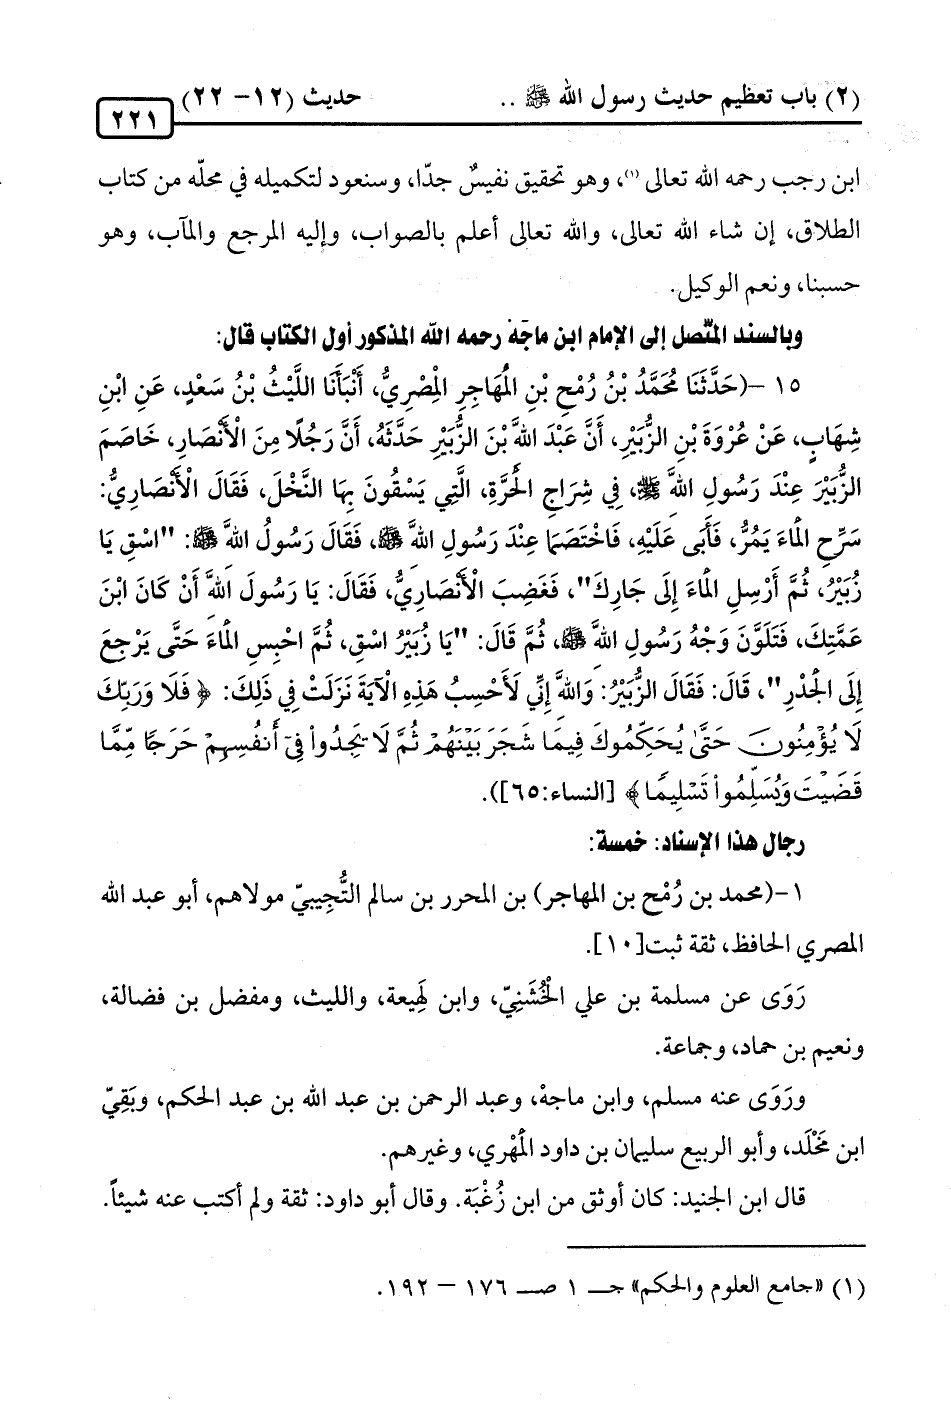 (٢) باب تعظيم حديث رسول الله ﷺ .. حديث (١٢- ٢٢)
٢٢١
ابن رجب رحمه الله تعالى (١)، وهو تحقيق نفيسٌ جدّا، وسنعود لتكميله في محلّه من كتاب
الطلاق، إن شاء الله تعالى، والله تعالى أعلم بالصواب، وإليه المرجع والمآب، وهو
حسبنا، ونعم الوكيل.
وبالسند المتّصل إلى الإمام ابن ماجَهْ رحمه الله المذكور أول الكتاب قال:
١٥ -(حَدَّثَنَا مُحَمَّدُ بْنُ رُمْحِ بْنِ الْمُهَاجِرِ الْمِصْرِيُّ، أَنْبَأَنَا اللَّيْثُ بْنُ سَعْدٍ، عَنِ ابْنِ
شِهَابٍ، عَنْ عُرْوَةَ بْنِ الزُّبَيْرِ، أَنَّ عَبْدَ اللهَّ بْنَ الزُّبَيْرِ حَدَّثَهُ، أَنَّ رَجُلًا مِنَ الْأَنْصَارِ، خَاصَمَ
الزُّبَيْرَ عِنْدَ رَسُولِ اللهَِّ ﷺ، فِي شِرَاجِ الْحَرَّةِ، الَّتِي يَسْقُونَ بِهَا النَّخْلَ، فَقَالَ الْأَنْصَارِيُّ:
سَرِّحِ الْمَاءَ يَمُرُّ، فَأَبَى عَلَيْهِ، فَاخْتَصَمَا عِنْدَ رَسُولِ اللهَِّ ﷺ، فَقَالَ رَسُولُ اللهَِّ ﷺ: "اسْقِ يَا
زُبَيْرُ، ثُمَّ أَرْسِلِ الْمَاءَ إِلَى جَارِكَ"، فَغَضِبَ الْأَنْصَارِيُّ، فَقَالَ: يَا رَسُولَ اللهَِّ أَنْ كَانَ ابْنَ
عَمَّتِكَ، فَتَلَوَّنَ وَجْهُ رَسُولِ اللهَِّ ﷺ، ثُمَّ قَالَ: "يَا زُبَيْرُ اسْقِ، ثُمَّ احْبِسِ الْمَاءَ حَتَّى يَرْجِعَ
إِلَى الْجَدْرِ"، قَالَ: فَقَالَ الزُّبَيْرُ: وَاللهَِّ إِنِّي لَأَحْسِبُ هَذِهِ الْآيَةَ نَزَلَتْ فِي ذَلِكَ: ﴿ فَلَا وَرَبِّكَ
لَا يُؤْمِنُونَ حَتَّى يُحَكِّمُوكَ فِيمَا شَجَرَ بَيْنَهُمْ ثُمَّ لَا يَجِدُواْ فِي أَنفُسِهِمْ حَرَجًا مِّمَّا
قَضَيْتَ وَيُسَلِّمُواْ تَسْلِيمًا ﴾ [النساء:٦٥]).
رجال هذا الإسناد: خمسة:
١-(محمد بن رُمْح بن المهاجر) بن المحرر بن سالم التُّجِيبيّ مولاهم، أبو عبد الله
المصري الحافظ، ثقة ثبت[١٠].
رَوَى عن مسلمة بن علي الْخُشَنِيّ، وابن لهيعة، والليث، ومفضل بن فضالة،
ونعيم بن حماد، وجماعة.
ورَوَى عنه مسلم، وابن ماجهْ، وعبد الرحمن بن عبد الله بن عبد الحكم، وبَقِيّ
ابن مَخْلَد، وأبو الربيع سليمان بن داود الْمَهْري، وغيرهم.
قال ابن الجنيد: كان أوثق من ابن زُغْبَة. وقال أبو داود: ثقة ولم أكتب عنه شيئاً.
(١) «جامع العلوم والحكم» جـ ١ صـ ١٧٦ - ١٩٢.